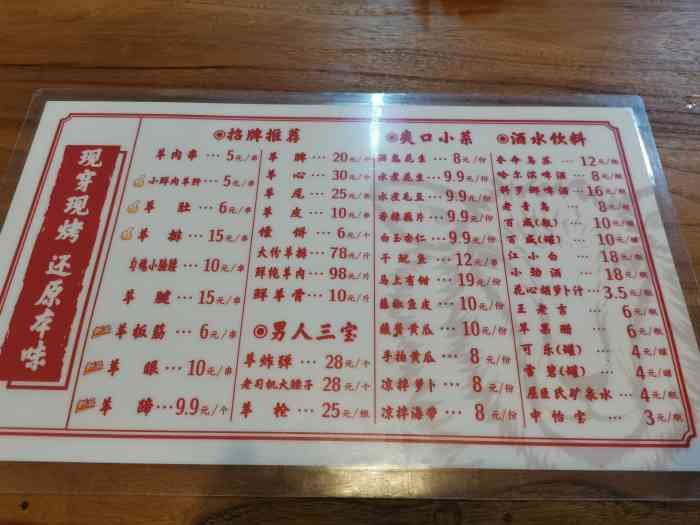 现穿现烤 还原本味
招牌推荐
羊肉串 ··· 5元/串
小鲜肉羊胖 ··· 5元/串
羊肚 ··· 6元/串
羊排 ··· 15元/串
··· 10元/串
羊腱 ··· 15元/串
羊板筋 ··· 6元/串
羊眼 ··· 10元/串
羊蹄 ··· 9.9元/个
羊脾 ··· 20元/个
羊心 ··· 30元/个
羊尾 ··· 25元/串
羊皮 ··· 10元/串
馕饼 ··· 6元/个
大竹羊排 ··· 78元/斤
鲜炖羊肉 ··· 98元/斤
鲜羊骨 ··· 10元/斤
男人三宝
羊炸弹 ··· 28元/个
老司机大腰子 28元/个
羊枪 ··· 25元/根
爽口小菜
酒鬼花生 ··· 8元/份
水煮花生 ··· 9.9元/份
水煮毛豆 ··· 9.9元/份
香辣藕片 ··· 9.9元/份
白玉杏仁 ··· 9.9元/份
干鱿鱼 ··· 12元/串
马上有钳 ··· 19元/份
藤椒鱼皮 ··· 10元/份
酸黄黄瓜 ··· 10元/份
手拍黄瓜 ··· 8元/份
凉拌萝卜 ··· 8元/份
凉拌海带 ··· 8元/份
酒水饮料
夺命乌苏 ··· 12元/瓶
哈尔滨啤酒 ··· 8元/瓶
科罗娜啤酒 ··· 16元/瓶
老青岛 ··· 8元/瓶
百威(瓶) ··· 10元/瓶
百威(罐) ··· 10元/罐
江小白 ··· 18元/瓶
小劲酒 ··· 18元/瓶
花心胡萝卜汁 ··· 3.5元/瓶
王老吉 ··· 6元/瓶
苹果醋 ··· 6元/瓶
可乐(罐) ··· 4元/罐
雪碧(罐) ··· 4元/罐
屈臣氏矿泉水 ··· 4元/瓶
中怡宝 ··· 3元/瓶